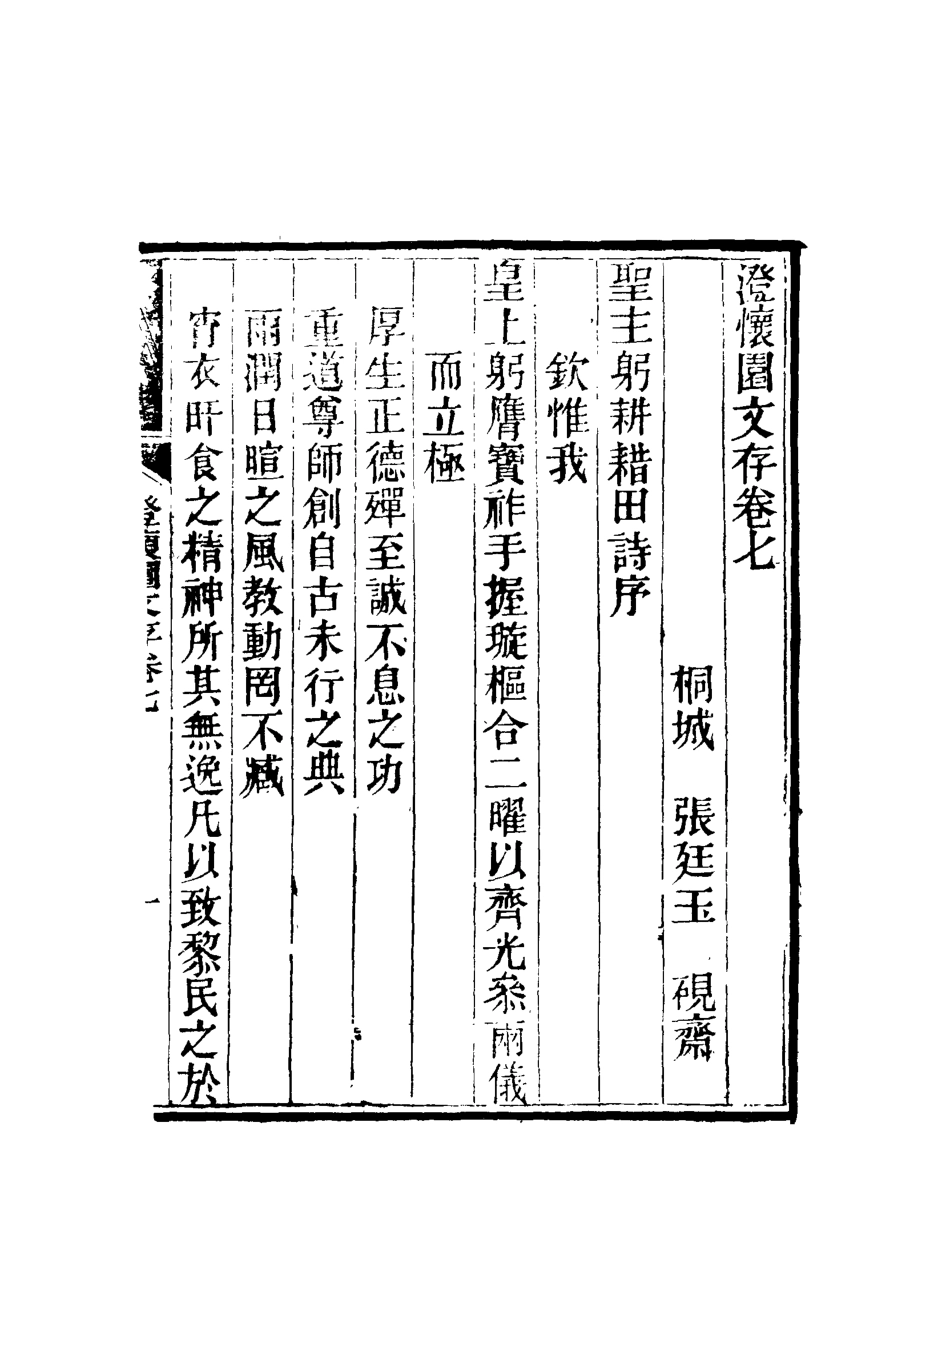 澄懷園文存卷七
桐城　張廷玉　硯齋
聖主躬耕耤田詩序
欽惟我
皇上躬膺寶祚手握璇樞合二曜以齊光叅兩儀
而立極
厚生正德殫至誠不息之功
重道尊師創自古未行之典
雨潤日暄之風教動罔不臧
宵衣旰食之精神所其無逸凡以致黎民之於
澄懷園文存卷七
一